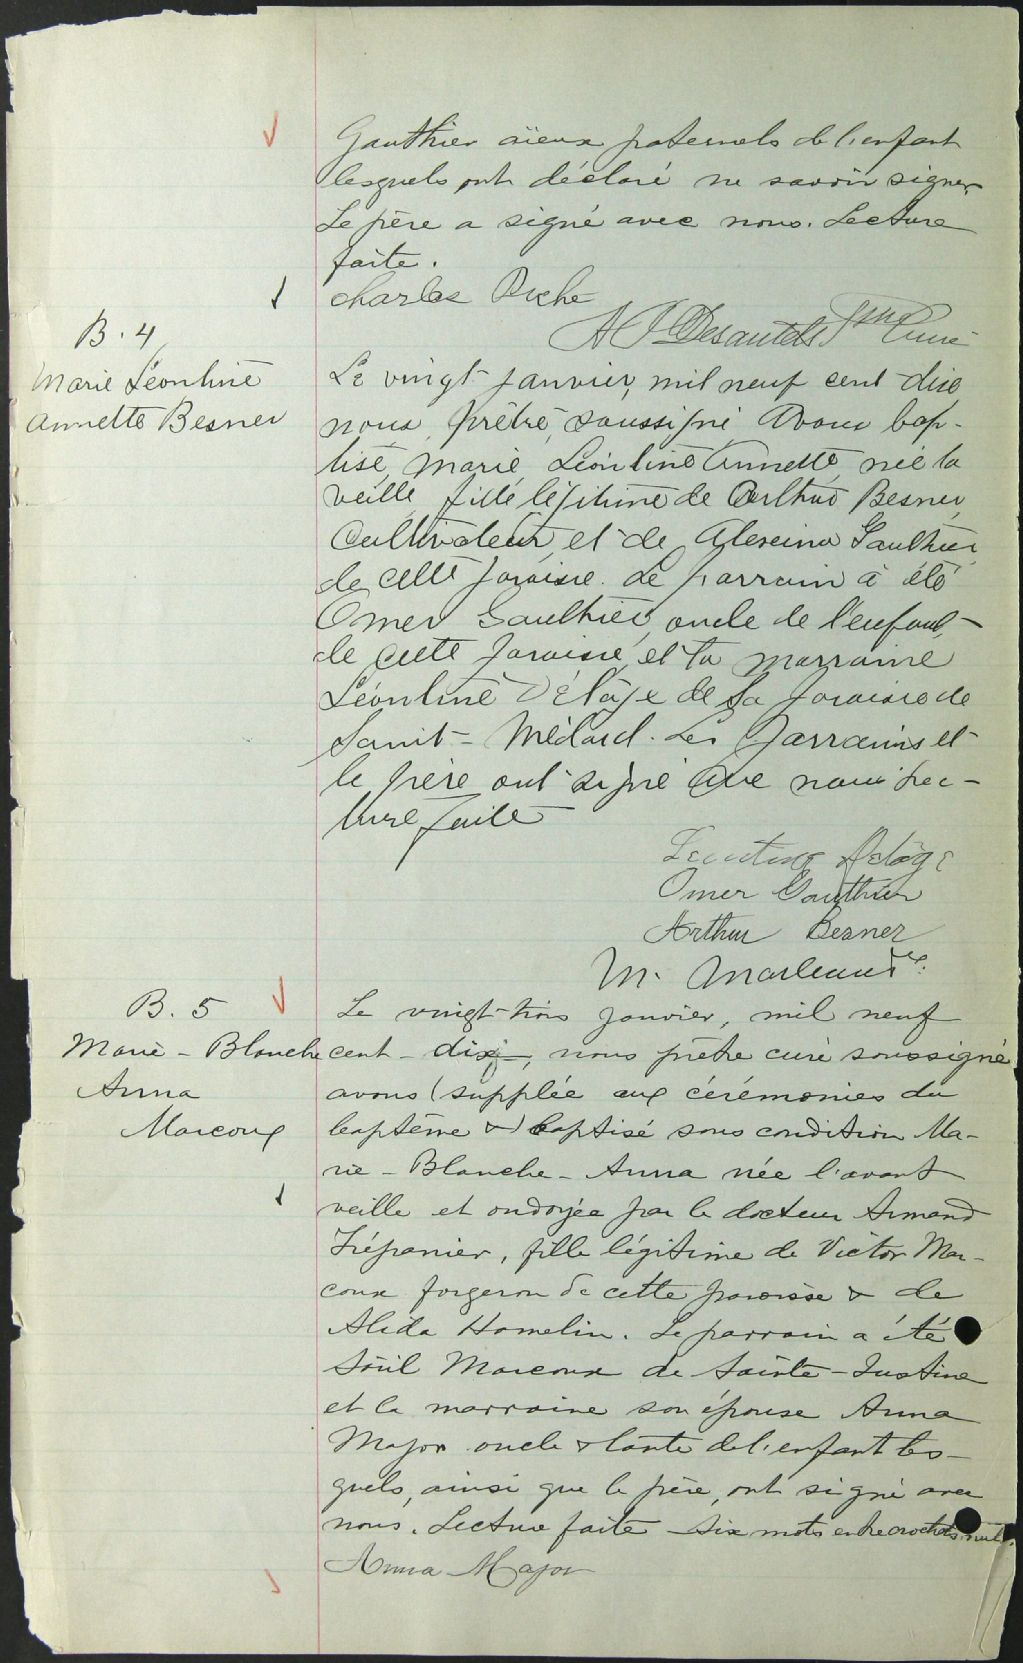 Gauthier aïeux paternels de l'enfant
lesquels ont déclaré ne savoir signer
Le père a signé avec nous. Lecture
faite.
Charles Piché
A J Desautels Ptre Curé
B. 4
Marie Léontine
Annette Besner
Le vingt janvier, mil neuf cent dix
nous, prêtre, soussigné avons bap-
tisé, Marie, Léontine Annette, née la
veille, fille légitime de Arthur Besner,
Cultivateur, et de Alexina Gauthier
de cette paroisse. Le parrain a été
Omer Gauthier, oncle de l'enfant,
de cette paroisse, et la marraine
Léontine Délâge de la paroisse de
Saint-Médard. Les parrains et
le père ont signé avec nous. Lec-
ture faite
Léontine Delâge
Omer Gauthier
Arthur Besner
M. Marleau Ptre.
B. 5
Marie-Blanche
Anna
Marcoux
Le vingt-trois janvier, mil neuf
cent-dix, nous prêtre curé soussigné
avons (supplée aux cérémonies du
baptême &) baptisé sous condition Ma-
rie-Blanche-Anna née l'avant
veille et ondoyée par le docteur Armand
Trépanier, fille légitime de Victor Mar-
coux forgeron de cette paroisse & de
Alida Hamelin. Le parrain a été
Marcoux de Sainte-Justine
et la marraine son épouse Anna
Major oncle & tante de l'enfant les-
quels, ainsi que le père, ont signé avec
nous. Lecture faite six mots entre crochets nuls.
Anna Major